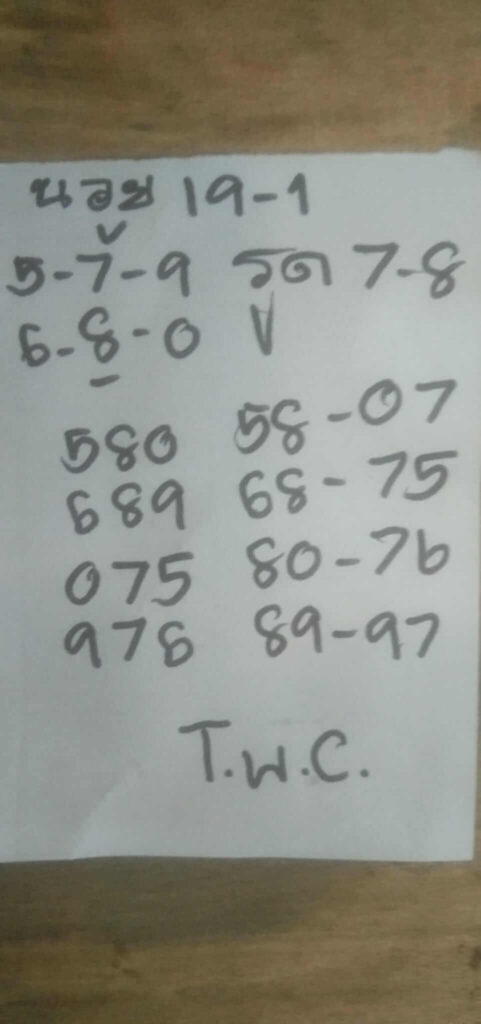 นอย 19-1
5-7-9 รูด 7-8
6-8-0 V
580 58-07
689 68-75
075 80-76
976 89-97
T.W.C.